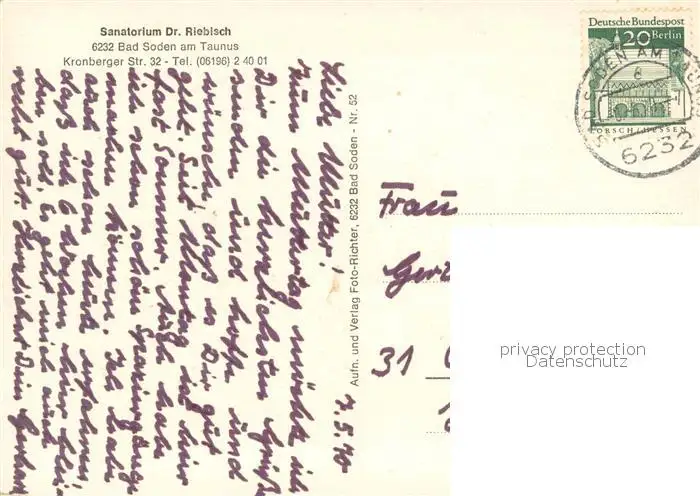 Sanatorium Dr. Riebisch
6232 Bad Soden am Taunus
Kronberger Str. 32 - Tel. (06196) 2 40 01
7. 5. 70
Liebe Mutter!
Zum Muttertag möchte ich
Dir die herzlichsten Grüße
senden und hoffe und
wünsche, daß es Dir gut
geht. Seit Montag ist hier
fast Sommer. Auch habe
ich schon schöne Spaziergänge
machen können. Ich habe
auch schon heute erfahren
daß ich 6 Wochen hier blei-
ben soll. Es geht mir auch
recht gut. Herzlichst Dein
Aufn. und Verlag Foto-Richter, 6232 Bad Soden - Nr. 52
Deutsche Bundespost
20 Berlin
LORSCH/HESSEN
BAD SODEN AM
6232
Frau
31
privacy protection
Datenschutz